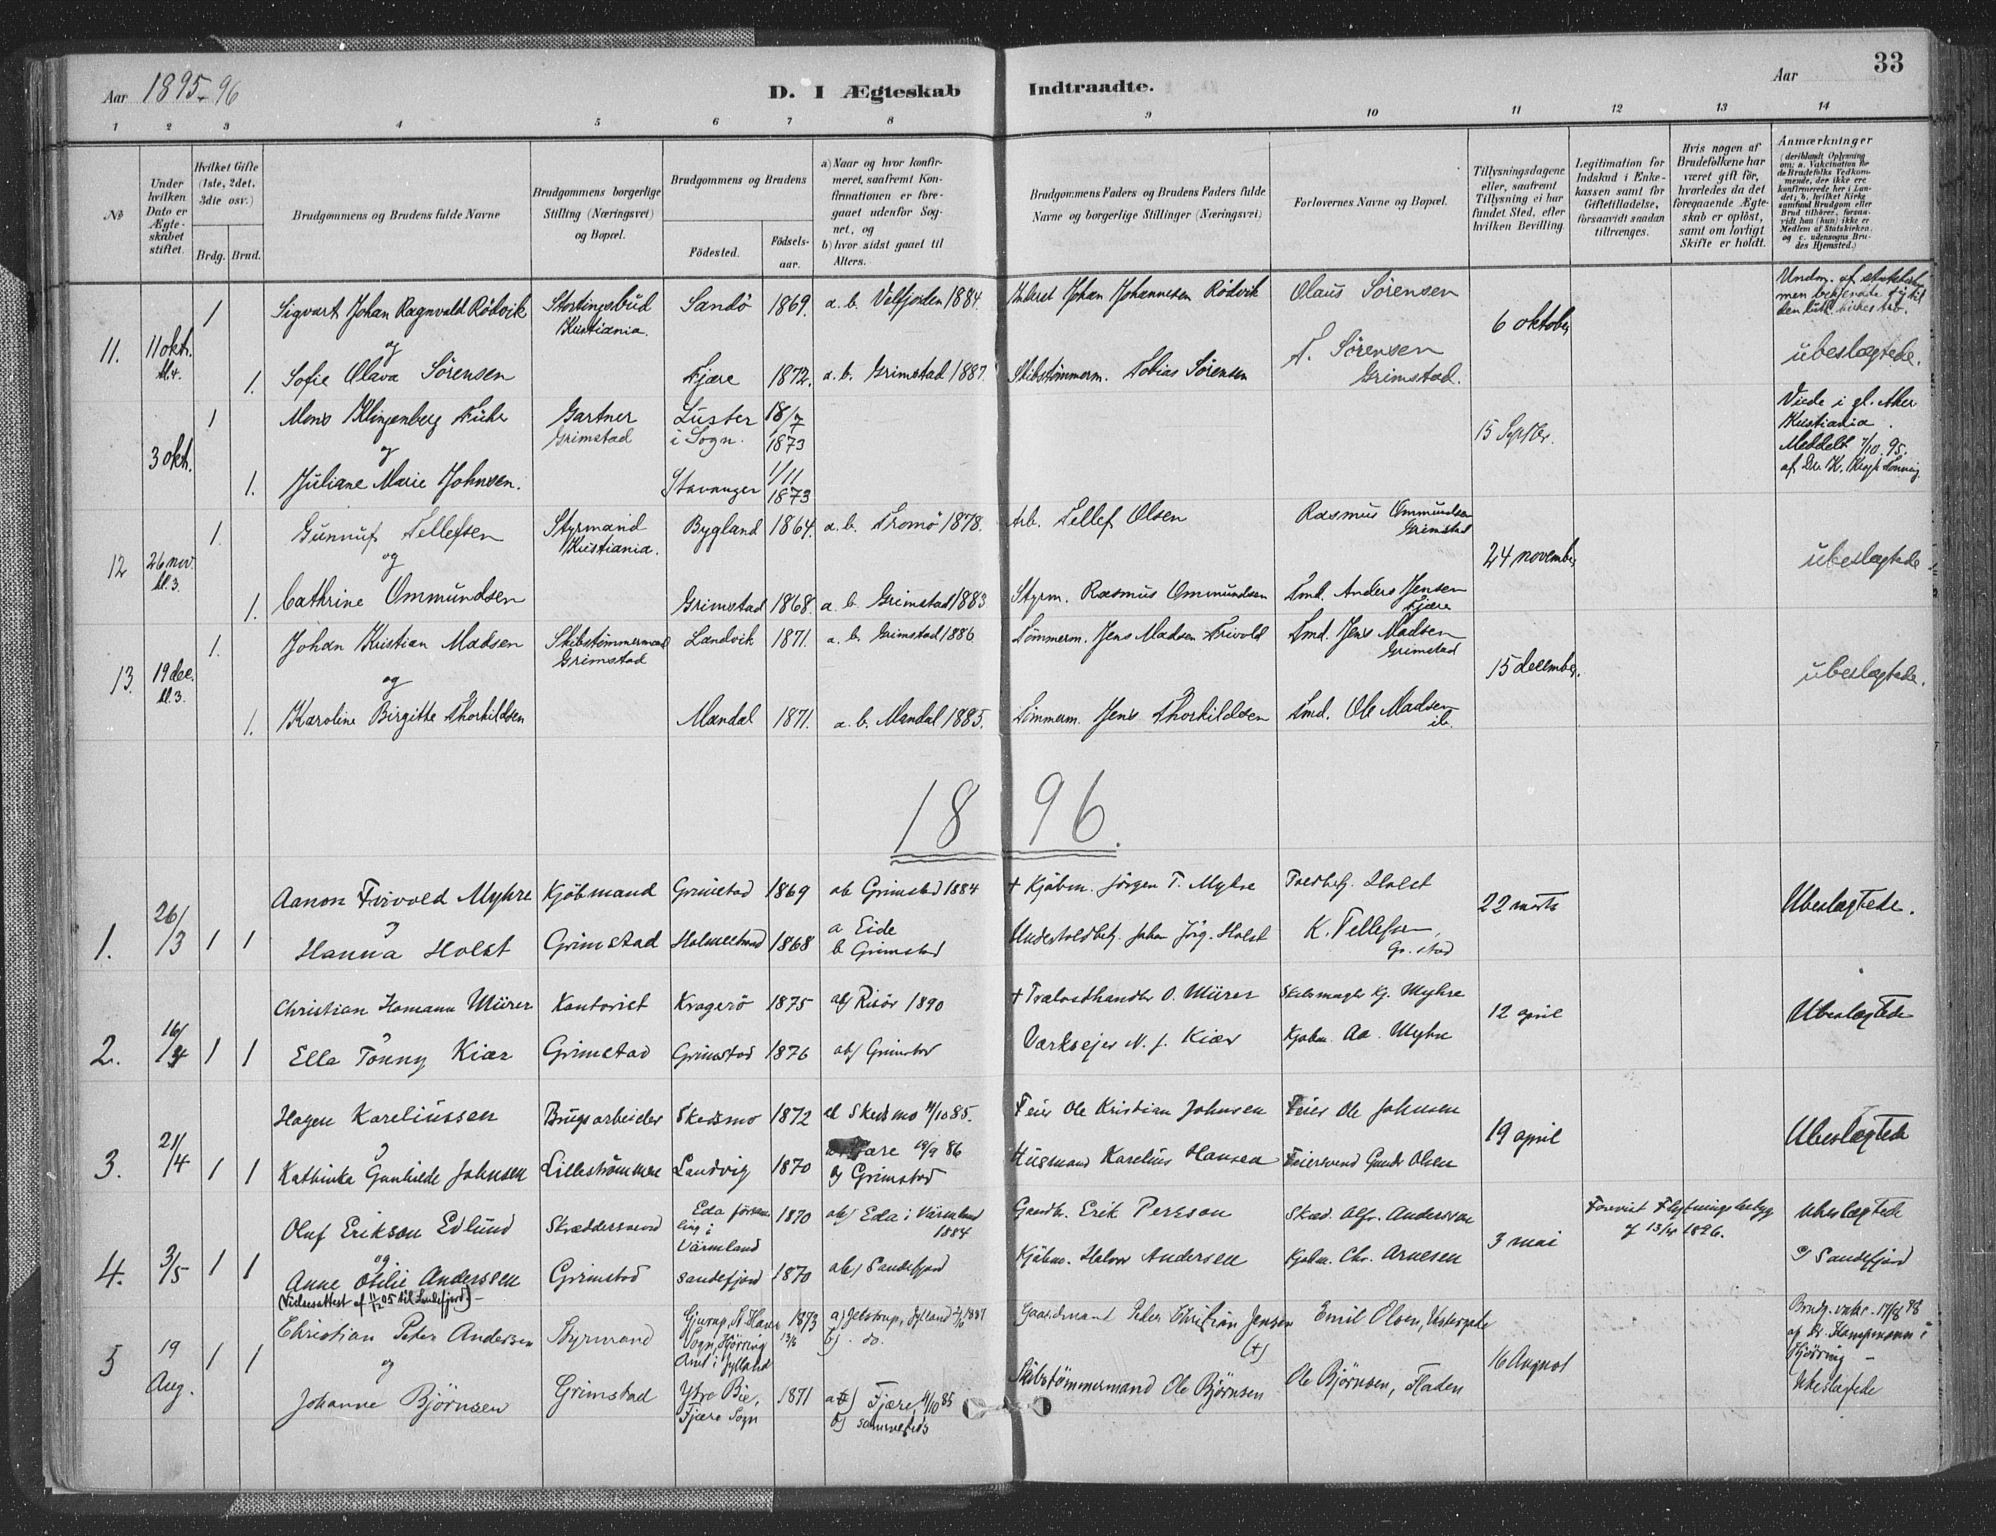 33
Aar 1895-96
D. I Ægteskab Indtraadte.
Aar
1 2 3 4 5 6 7 8 9 10 11 12 13 14
№
Under hvilken Dato er Ægteskabet stiftet.
Hvilket Gifte (1ste, 2det, 3die osv.)
Brdg. Brud.
Brudgommens og Brudens fulde Navne
Brudgommens borgerlige Stilling (Næringsvei) og Bopæl.
Brudgommens og Brudens
Fødested.
Fødselsaar.
a) Naar og hvor konfirmeret, saafremt Konfirmationen er foregaaet udenfor Sognet, og
b) hvor sidst gaaet til Alters.
Brudgommens Faders og Brudens Faders fulde Navne og borgerlige Stillinger (Næringsvei)
Forlovernes Navne og Bopæl.
Tillysningsdagene eller, saafremt Tillysning ei har fundet Sted, efter hvilken Bevilling.
Legitimation for Indskud i Enkekassen samt for Giftetilladelse, forsaavidt saadan tiltrænges.
Hvis nogen af Brudefolkene har været gift før, hvorledes da det foregaaende Ægteskab er opløst, samt om lovligt Skifte er holdt.
Anmærkninger
(deriblandt Oplysning om: a. Vakcination for de Brudefolks Vedkommende, der ikke ere konfirmerede her i Landet; b. hvilket Kirkesamfund Brudgom eller Brud tilhører, forsaavidt han (hun) ikke er Medlem af Statskirken og c. udensogns Brudes Hjemsted.)
11. 11 okt. kl. 4.
1 Sigvart Johan Ragnvald Rödvik Stortingsbud Kristiania. Sandö 1869. a. b. Velfjorden 1884. Johan Johannesen Rödvik Olaus Sörensen
og
6 oktober
ubeslægtede.
1. Sofie Olava Sörensen Fjære 1872. a. b. Grimstad 1887. Skibstömmerm. Tobias Sörensen T. Sörensen Grimstad.
3 okt.
1 Mons Klingenberg Gartner Grimstad Luster i Sogn. 18/7 1873
og
15 Septbr.
Viede i gl. Aker Kristiania. Meddelt 7/10. 95. af
1. Juliane Marie Johnsen. Stavanger 1/11 1873
12 26 nov. kl. 3.
1. Gunnuf Tellefsen Styrmand Kristiania. Bygland 1864. a. b. Tromö 1878. Arb. Tellef Olsen Rasmus Ommundsen Grimstad
og
24 november
ubeslægtede
1. Cathrine Ommundsen Grimstad 1868. a. b. Grimstad 1883 Styrm. Rasmus Ommundsen Tmd. Anders Jensen Fjære
13. 19 dec. kl. 3.
1. Johan Kristian Madsen Skibstömmermand Grimstad Landvik 1871. a. b. Grimstad 1886 Tömmerm. Jens Madsen Frivold Tmd. Jens Madsen Grimstad
og
15 december.
ubeslægtede.
1. Karoline Birgitte Thorkildsen Mandal 1871. a. b. Mandal 1885. Tömmerm. Jens Thorkildsen Tmd. Ole Madsen ib.
1896.
1. 26/3 1 1
Aanon Frivold Myhre Kjöbmand Grimstad 1869 ab Grimstad 1884 + Kjöbm. Jörgen T. Myhre Toldbetj. Holst
22 marts
Ubeslægtede.
Hanna Holst Grimstad Holmestrand 1868 a Eide b Grimstad Undertoldbetj. Johan Jörg. Holst K. Tellefsen, Gr.stad
2. 16/4 1 1
Christian Homann Mürer Kontorist Kragerö 1875 ab/ Risör 1890 + Trælasthandler O. Mürer Skibsmægler Kj. Myhre
12 april
Ubeslægtede
Ella Tönny Kiær Grimstad Grimstad 1876 ab/ Grimstad Værksejer N. J. Kiær Kjöbm. Aa. Myhre
3. 21/4 1 1
Hagen Kareliussen Brugsarbeider Skedsmo 1872 Skedsmo 4/10 85. Feier Ole Kristian Johnsen Feier Ole Johnsen
19 april
Ubeslægtede
Kathinka Gunhilde Johnsen Lilleströmmen Landvig 1870 19/9 86 b/ Grimstad Husmand Karelius Hansen Feiersvend Olsen
4. 3/5 1 1
Oluf Erikson Edlund Skræddersvend Eda försam ling i Värmland 1870 ab/ Eda i Värmland 1884 Gaardb. Erik Persson Skræd. Alfr. Andersen
og
3 mai
Forevist Flytningsbetyg 1896.
Ubeslægtede
Sandefjord
Anne Otilie Anderssen Grimstad Sandefjord 1870 ab/ Sandefjord Kjöbm. Halvor Andersen Kjöbm. Chr. Arnesen
(Vielsesattest af 11/2 05 til Sandefjord) -
5 19 Aug. 1 1
Christian Peter Andersen Styrmand St. Hans Sogn, Hjörring Amt i Jylland 1873 a) Jetstrup, Jylland 1887 b) . do. Gaardmand Peder Christian Jensen (+) Emil Olsen,
og
16 August
af Hjörring - Ubeslægtede
Johanne Björnsen Grimstad Ytre Bie, Fjære Sogn 1871 a) Fjære, 4/10 85 b) sammesteds Skibstömmermand Ole Björnsen Ole Björnsen, Fladen